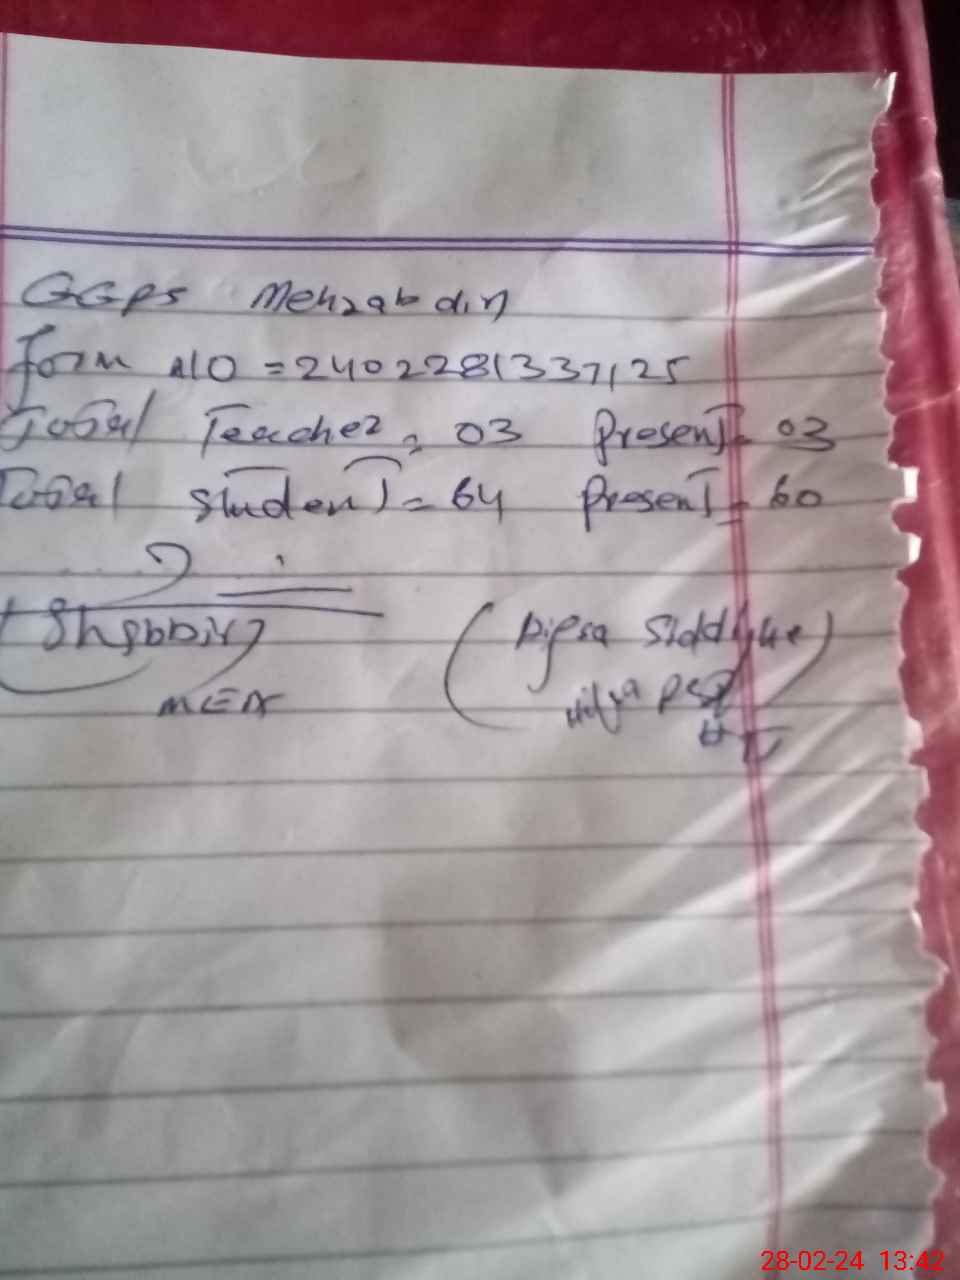 GGPS Mehzabdin
form NO = 2402281337125
Total Teacher = 03 Present = 03
Total Student = 64 Present = 60
(Shabbir)
MEA
(Dipsa Siddique)
28-02-24 13:42